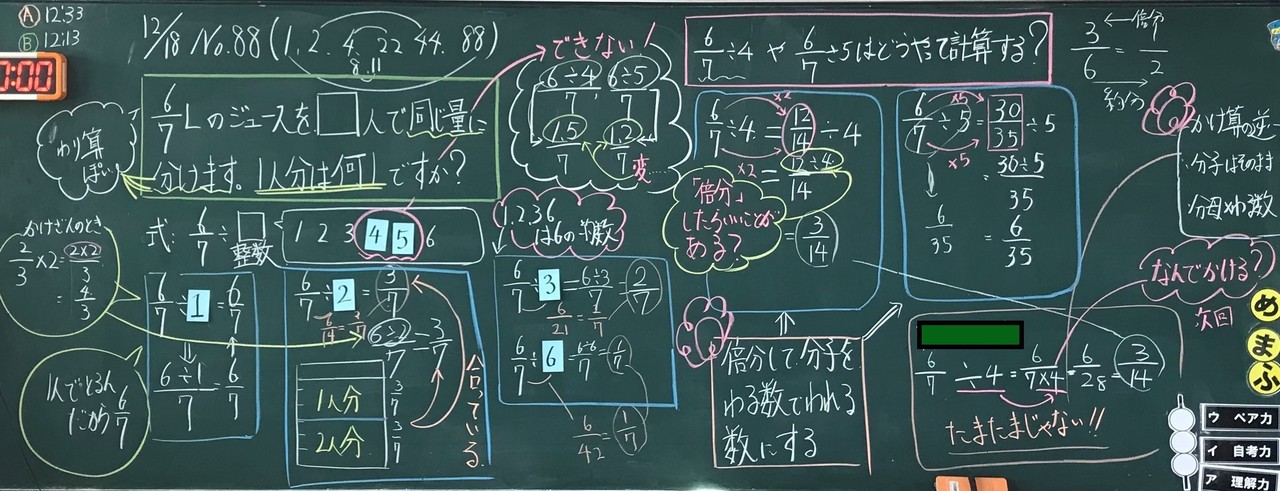 Ⓐ 12:33
Ⓑ 12:13
0:00
12/18 No.88 (1, 2, 4, 22 44. 88)
8, 11
できない!
6/7 Lのジュースを□人で同じ量に
分けます。1人分は何Lですか?
わり算
ぽい
6÷4/7, 6÷5/7
1.5/7 1.2/7
変…
6/7÷4 や 6/7÷5はどうやって計算する?
倍分
3/6 = /2
約分
式: 6/7÷□
整数
1 2 3 4 5 6
1.2.3.6
は6の約数
かけざんのとき
2/3×2=2×2/3
=4/3
6/7÷1=6/7
6÷1/7=6/7
1人でとるん
だから6/7
6/7÷2=3/7
6/14=3/7
6÷2/7=3/7
1人分
2人分
3/7
3/7
合っている
6/7÷3=6÷3/7=2/7
6/21=2/7
6/7÷6=6÷6/7=1/7
6/42 1/7
×2
6/7÷4=12/14÷4
×2
=12÷4/14
=3/14
「倍分」
したらいいことが
ある?
×5
6/7÷5=30/35÷5
×5
=30÷5/35
6/35
=6/35
倍分して分子を
わる数でわれる
数にする
かけ算の逆
・分子はそのまま
・分母×わる数
なんでかける?
次回
6/7÷4=6/7×4=6/28=3/14
たまたまじゃない!!
め
ま
ふ
ウ ペア力
イ 自考力
ア 理解力